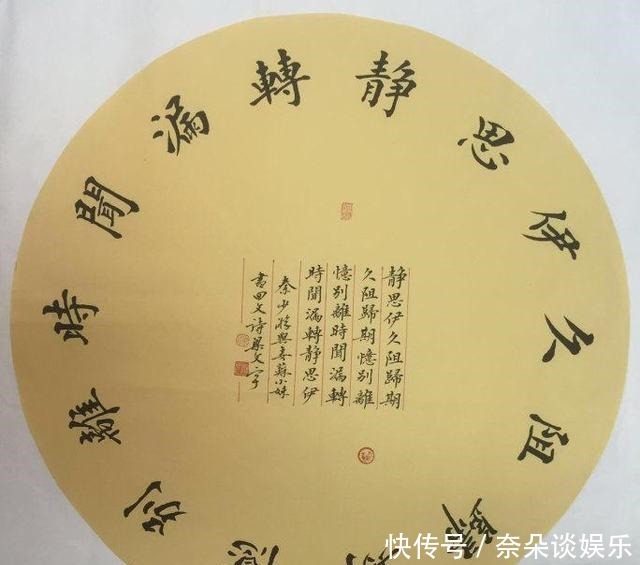 静思伊久阻歸期憶別離時聞漏轉
静思伊久阻歸期
久阻歸期憶別離
憶別離時聞漏轉
時聞漏轉静思伊
秦少游與妻蘇小妹
書回文詩
快传号 / 奈朵谈娱乐